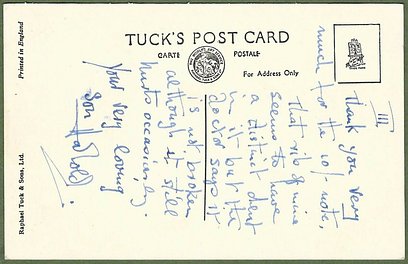 TUCK'S POST CARD
CARTE POSTALE
For Address Only
Printed in England
Raphael Tuck & Sons, Ltd.
III
Thank you very
much for the 10/- note,
That rib of mine
seems to have
a distinct dent
in it but the
Doctor says it
is not broken
although it still
hurts occasionly.
Your very loving
Son Harold.